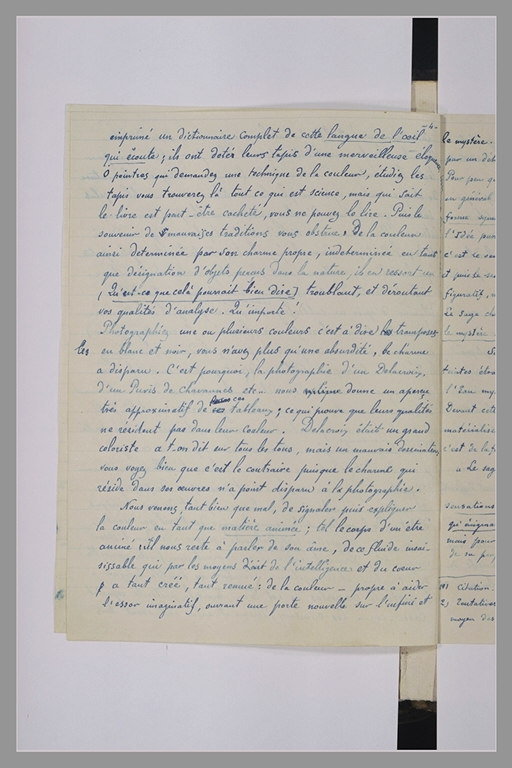 -4-
imprimé un dictionnaire complet de cette langue de l'oeil
qui écoute ; ils ont doter leurs tapis d'une merveilleuse éloquence
O peintres qui demandez une technique de la couleur, etudiez les
tapis vous trouverez là tout ce qui est science, mais qui sait
le livre est peut-être cacheté, vous ne pouvez le lire. Puis le
souvenir de mauvaises traditions vous obstrue. De la couleur
ainsi determinée par son charme propre, indeterminée en tant
que désignation d'objets perçus dans la nature, il en ressort un
( Qu'est-ce que cela pourrait bien dire ) troublant, et déroutant
vos qualités d'analyse. Qu'importe !
Photographiez une ou plusieurs couleurs c'est à dire transposez
les en blanc et noir, vous n'avez plus qu'une absurdité, le charme
a disparu. C'est pourquoi, la photographie d'un Delacroix,
d'un Puvis de Chavannes etc... nous donne un aperçu
très approximatif de ces tableaux ; ce qui prouve que leurs qualités
ne résident pas dans leur couleur. ! Delacroix était un grand
coloriste a t-on dit sur tous les tons, mais un mauvais dessinateur,
vous voyez bien que c'est le contraire puisque le charme qui
réside dans ses œuvres n'a point disparu à la photographie.
Nous venons, tant bien que mal, de signaler puis expliquer
la couleur en tant que matière animée ; tel le corps d'un être
animé : il nous reste à parler de son âme, de ce fluide insai-
sissable qui par les moyens de l'intelligence et du coeur
a tant créé, tant remué : de la couleur - propre à aider
l'essor imaginatif, ouvrant une porte nouvelle sur l'infini et
le mystère.
par un
Pour
en général
forme
l'Idée
c'est
et puis
figuratif,
Le sage
le mystère
l'Eau
Devant cette
c'est de la
a Le sag
sensations
mais pour
(1) Citation.
2) Tentatives
moyen des